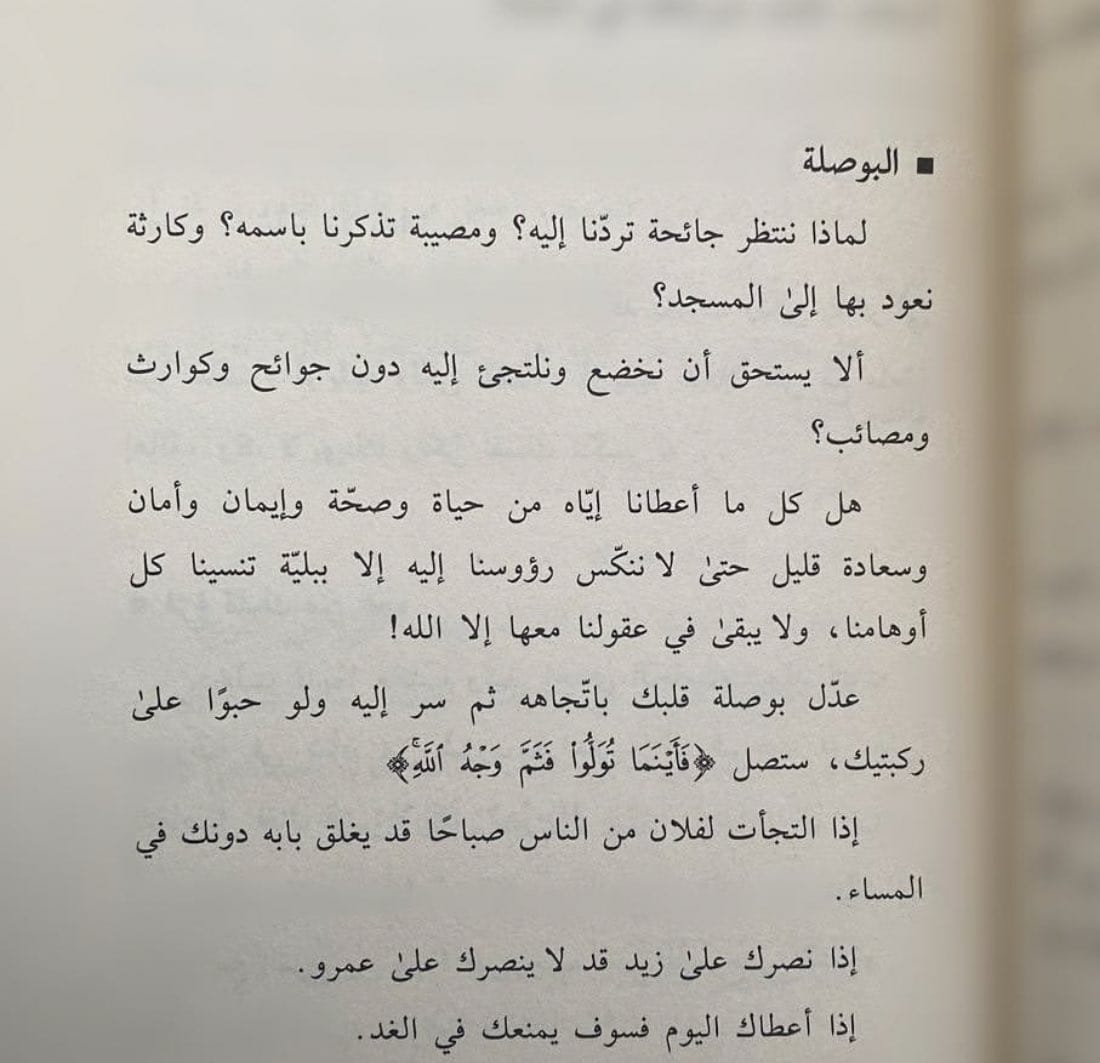 ■ البوصلة
لماذا ننتظر جائحة تردّنا إليه؟ ومصيبة تذكرنا باسمه؟ وكارثة
نعود بها إلىٰ المسجد؟
ألا يستحق أن نخضع ونلتجئ إليه دون جوائح وكوارث
ومصائب؟
هل كل ما أعطانا إيّاه من حياة وصحّة وإيمان وأمان
وسعادة قليل حتىٰ لا ننكّس رؤوسنا إليه إلا ببليّة تنسينا كل
أوهامنا، ولا يبقىٰ في عقولنا معها إلا الله!
عدّل بوصلة قلبك باتّجاهه ثم سر إليه ولو حبوًا علىٰ
ركبتيك، ستصل ﴿فَأَيْنَمَا تُوَلُّوا۟ فَثَمَّ وَجْهُ ٱللَّهِۚ﴾
إذا التجأت لفلان من الناس صباحًا قد يغلق بابه دونك في
المساء.
إذا نصرك علىٰ زيد قد لا ينصرك علىٰ عمرو.
إذا أعطاك اليوم فسوف يمنعك في الغد.